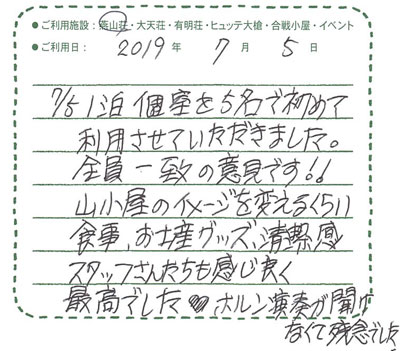 ●ご利用施設：燕山荘・大天荘・有明荘・ヒュッテ大槍・合戦小屋・イベント
●ご利用日：2019年7月5日
7/5 1泊 個室を5名で初めて
利用させていただきました。
全員一致の意見です!!
山小屋のイメージを変えるくらい
食事、お土産グッズ、清潔感
スタッフさんたちも感じ良く
最高でした♥ ホルン演奏が聞け
なくて残念でした